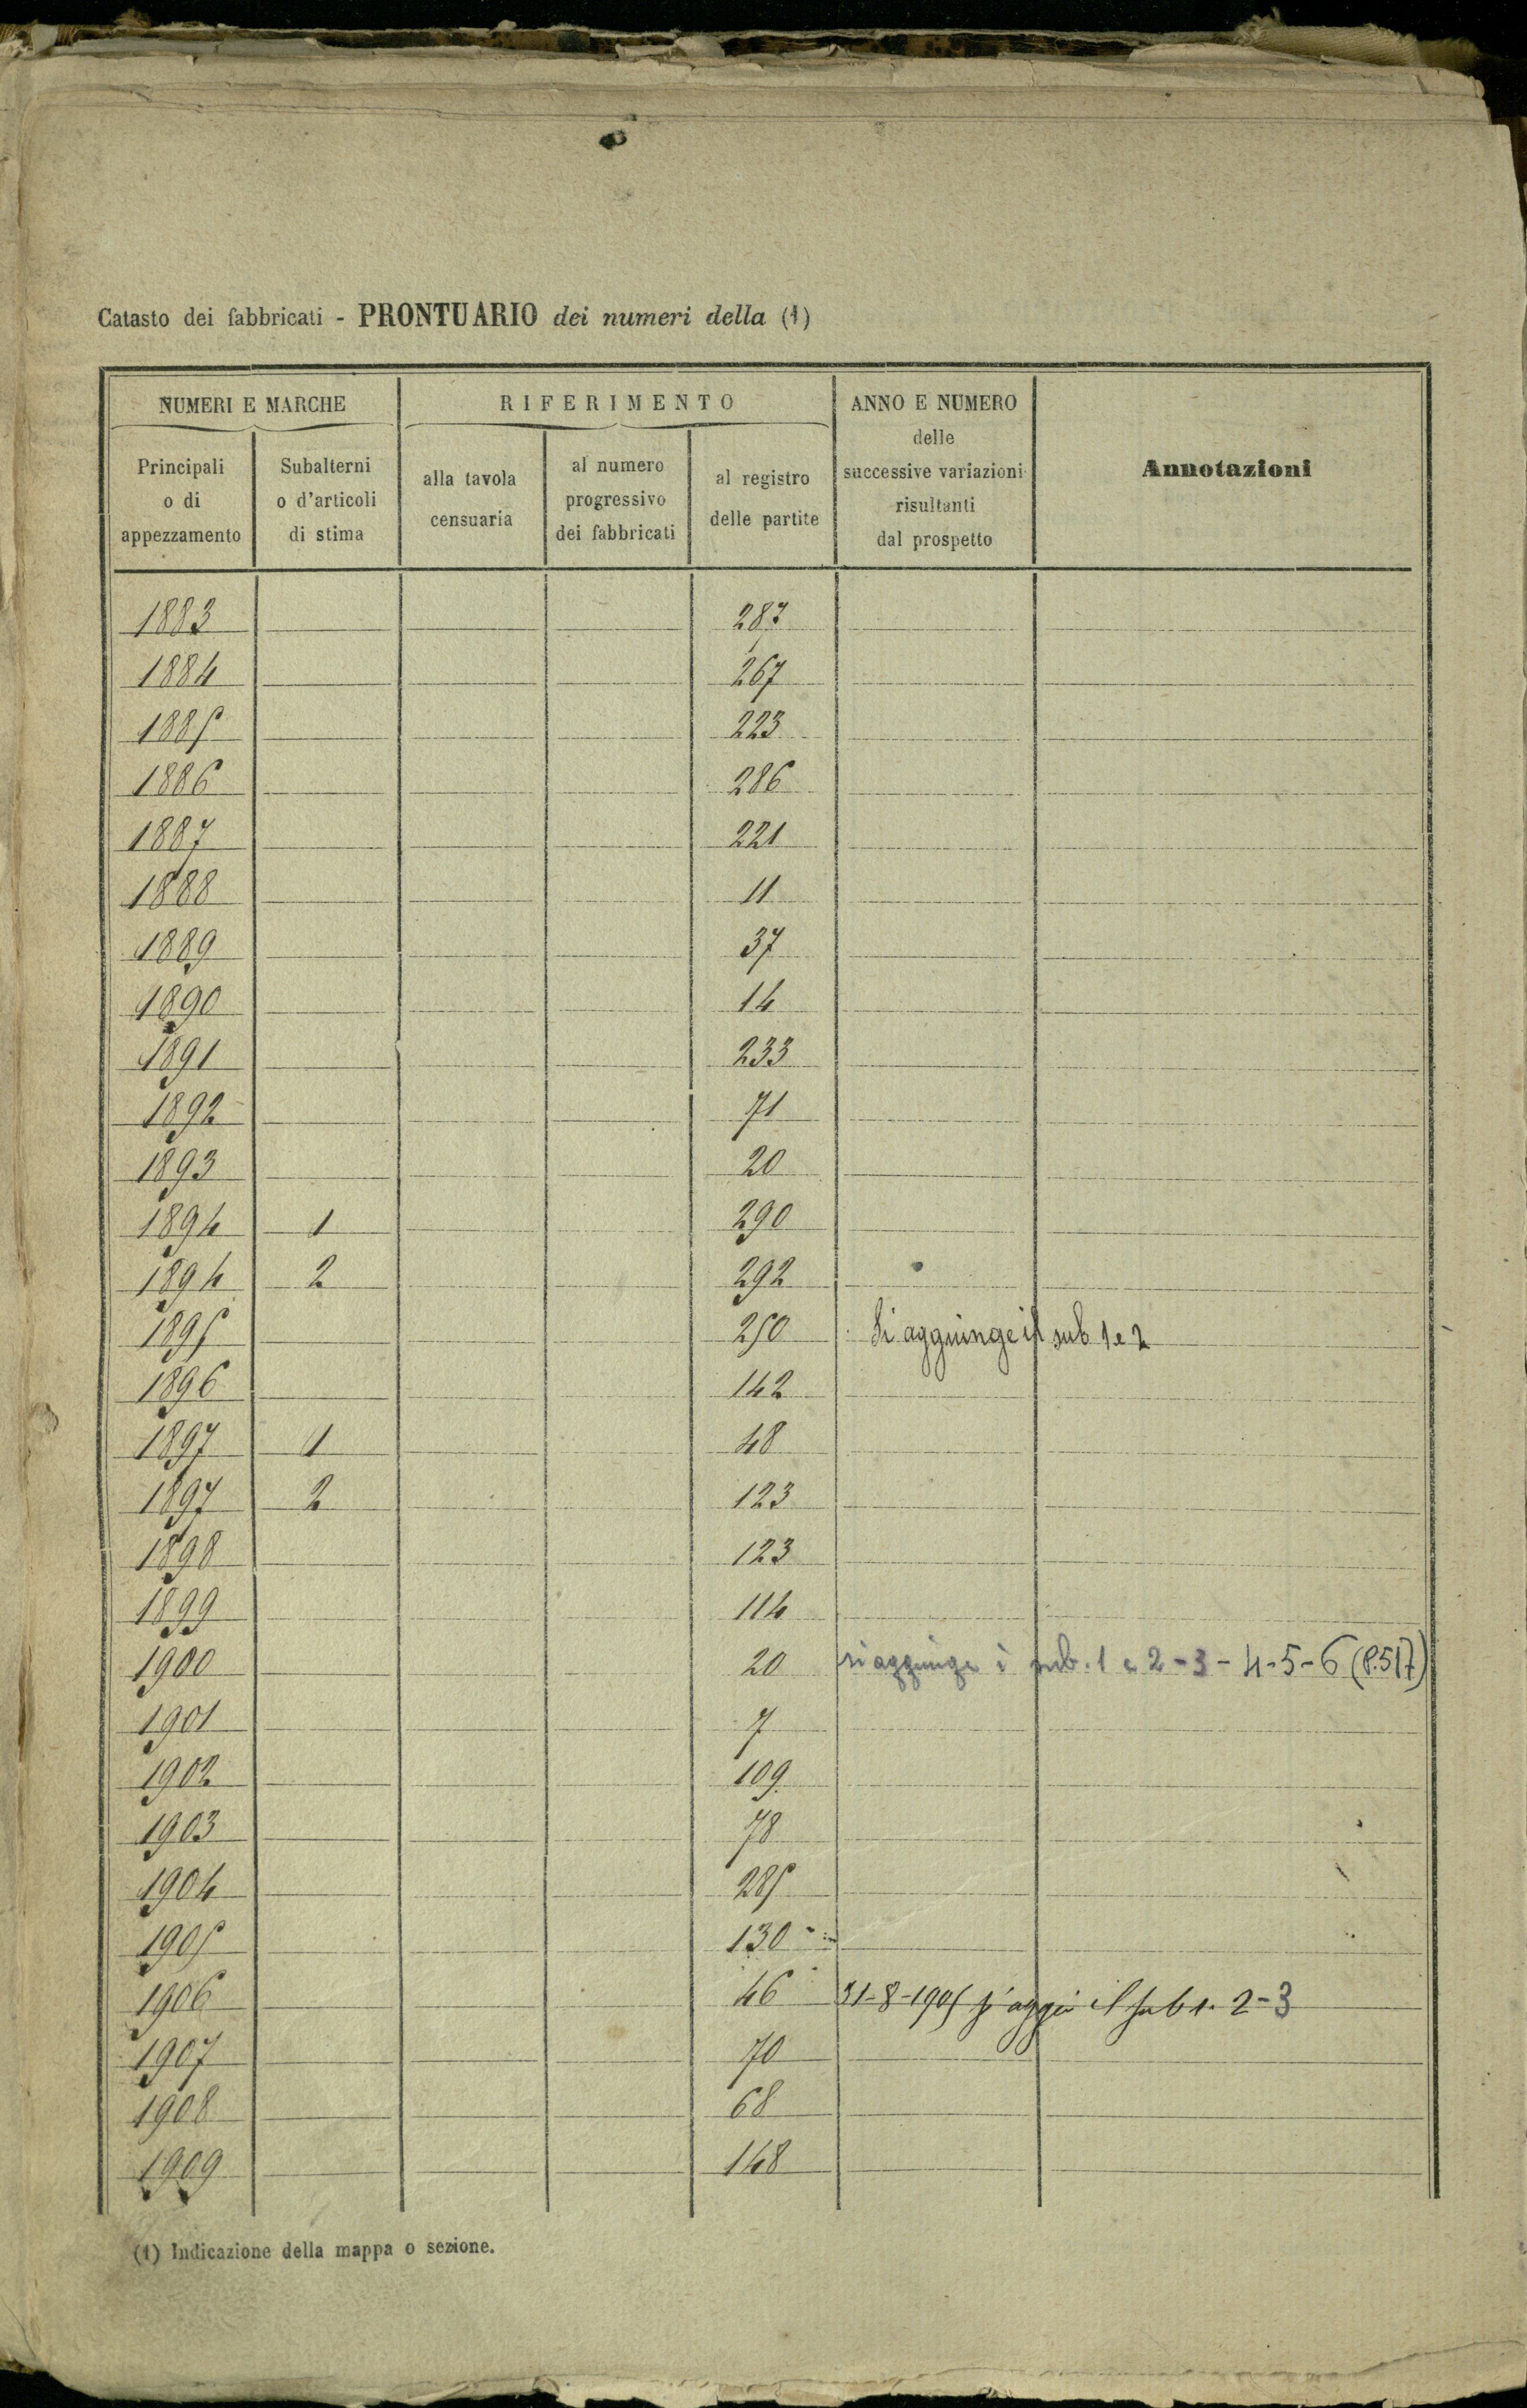 Catasto dei fabbricati - PRONTUARIO dei numeri della (1)
NUMERI E MARCHE
RIFERIMENTO
ANNO E NUMERO
delle
successive variazioni
risultanti
dal prospetto
Annotazioni
Principali
o di
appezzamento
Subalterni
o d'articoli
di stima
alla tavola
censuaria
al numero
progressivo
dei fabbricati
al registro
delle partite
1883 287
1884 267
1885 223
1886 286
1887 221
1888 11
1889 37
1890 14
1891 233
1892 71
1893 20
1894 1 290
1894 2 292
1895 250 Si aggiunge il sub 1 e 2
1896 142
1897 1 48
1897 2 123
1898 123
1899 114
1900 20 si aggiunge i sub. 1 e 2-3-4-5-6 (P.517)
1901 7
1902 109
1903 78
1904 285
1905 130
1906 46 31-8-1905 il sub 1. 2-3
1907 70
1908 68
1909 148
(1) Indicazione della mappa o sezione.